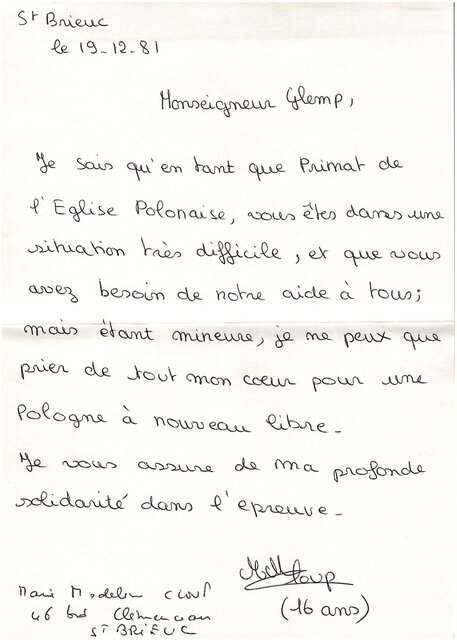 St Brieuc
le 19-12-81
Monseigneur Glemp,
Je sais qu'en tant que Primat de
l'Eglise Polonaise, vous êtes dans une
situation très difficile, et que vous
avez besoin de notre aide à tous;
mais étant mineure, je ne peux que
prier de tout mon cœur pour une
Pologne à nouveau libre_
Je vous assure de ma profonde
solidarité dans l'epreuve_
(16 ans)
Marie
46 bd Clémenceau
St BRIEUC